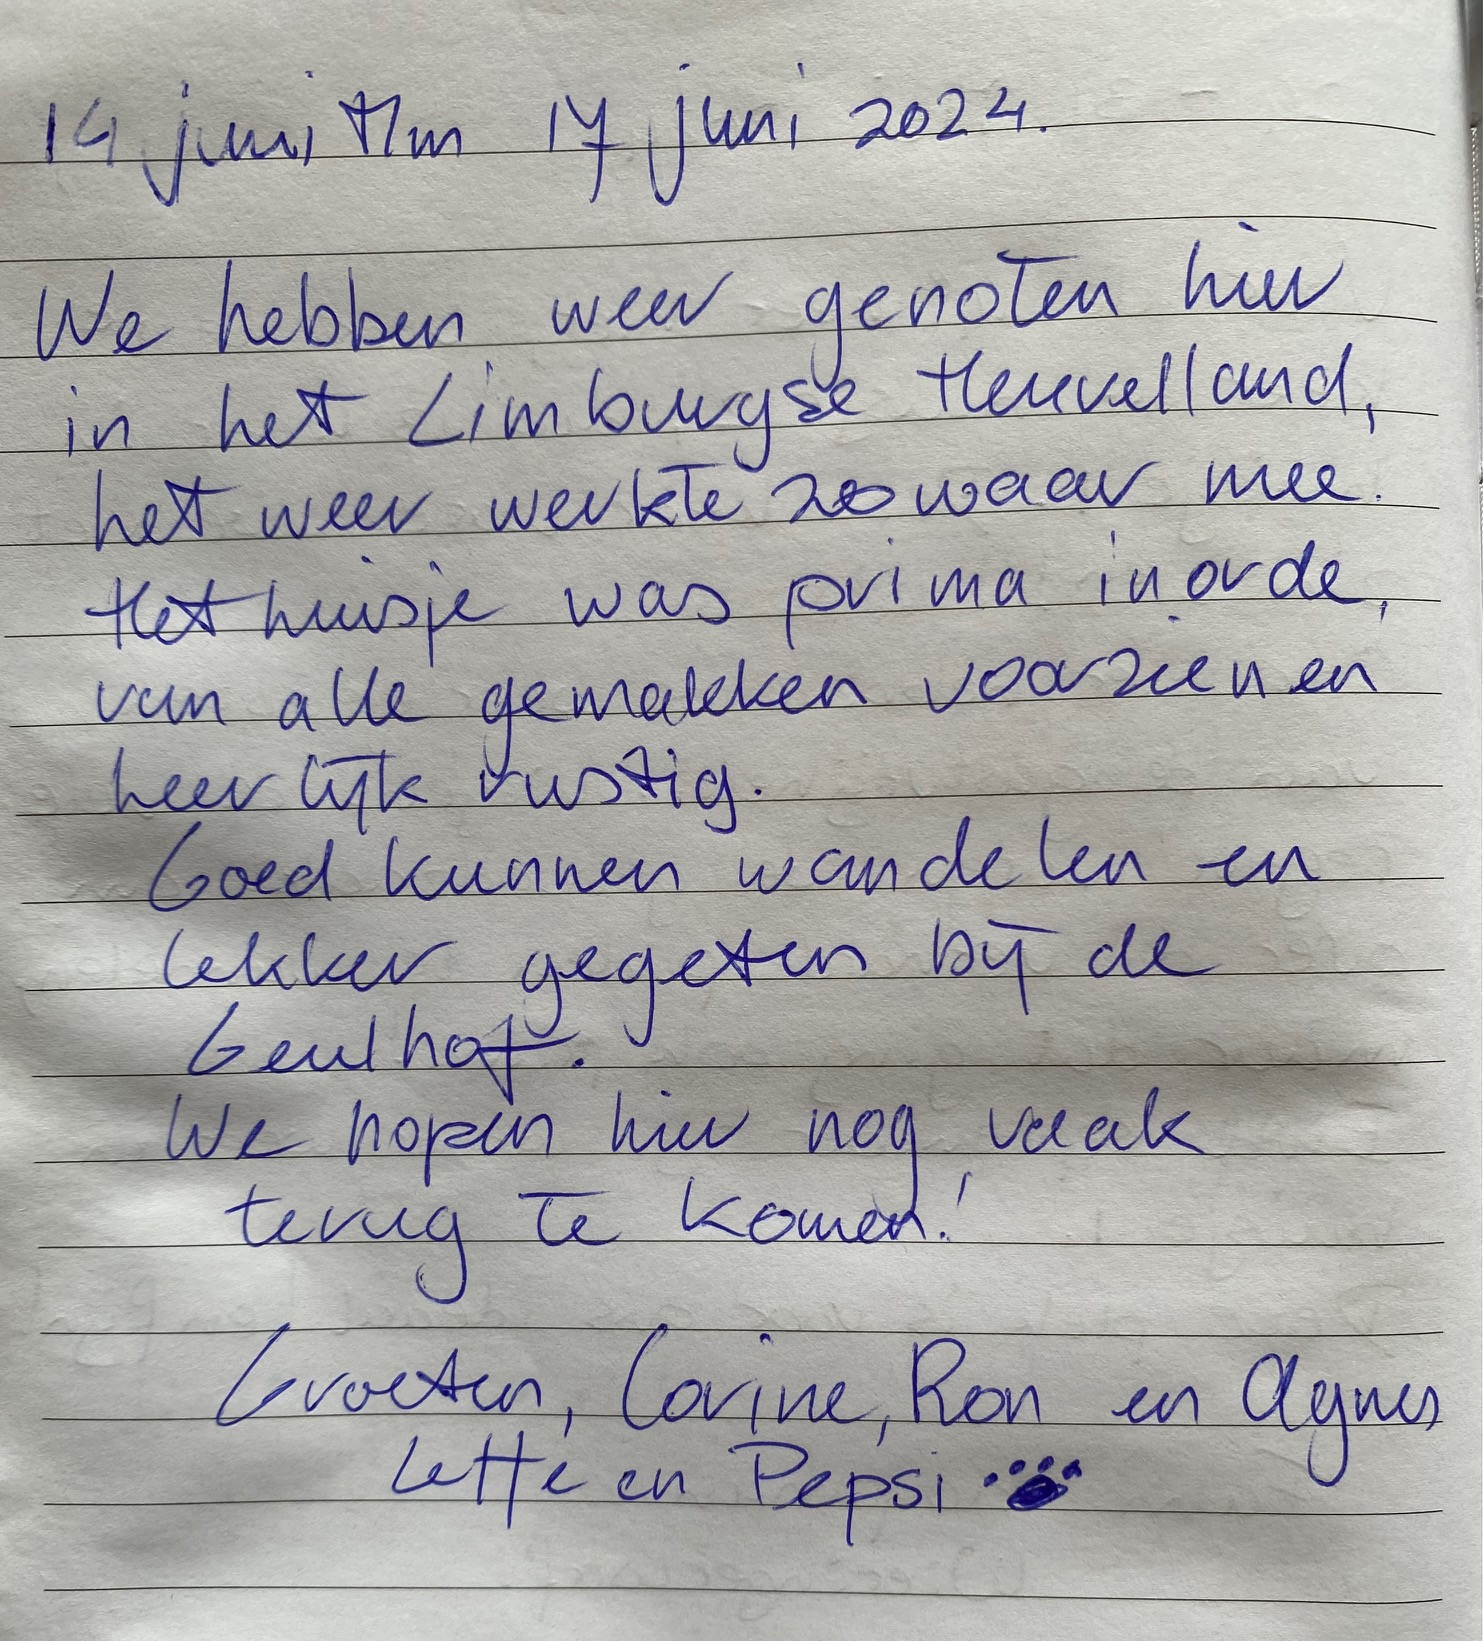 14 juni t/m 17 juni 2024.
We hebben weer genoten hier
in het Limburgse Heuvelland,
het weer werkte zowaar mee.
Het huisje was prima in orde,
van alle gemakken voorzien en
heerlijk rustig.
Goed kunnen wandelen en
lekker gegeten bij de
Geulhof.
We hopen hier nog vaak
terug te komen!
Groeten, Corine, Ron en Agnes
Lette en Pepsi